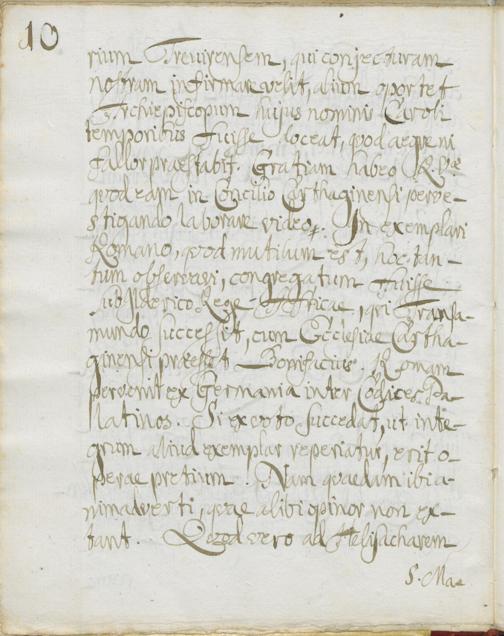 10
rium Trevirensem, qui conjecturam
nostram infirmare velit, alium oportet
Archiepiscopum hujus nominis Caroli
temporibus fuisse doceat, quod aegre ni
fallor praestabit. Gratiam habeo R. Vae
quod eam in Concilio Carthaginensi perve-
stigando laborare video. In exemplari
Romano, quod mutilum est, hoc tan-
tum observavi, congregatum fuisse
sub Ilderico Rege Africae, qui Transa-
mundo successit, cum Ecclesiae Cartha-
ginensi praeesset Bonifacius. Romam
pervenit ex Germania inter Codices Pa-
latinos. Si ex voto succedat, ut inte-
grum aliud exemplar reperiatur, erit o-
perae pretium. Nam quaedam ibi a-
nimadverti, quae alibi opinor non ex-
tant. Quod vero ad Helisacharem
S. Ma-